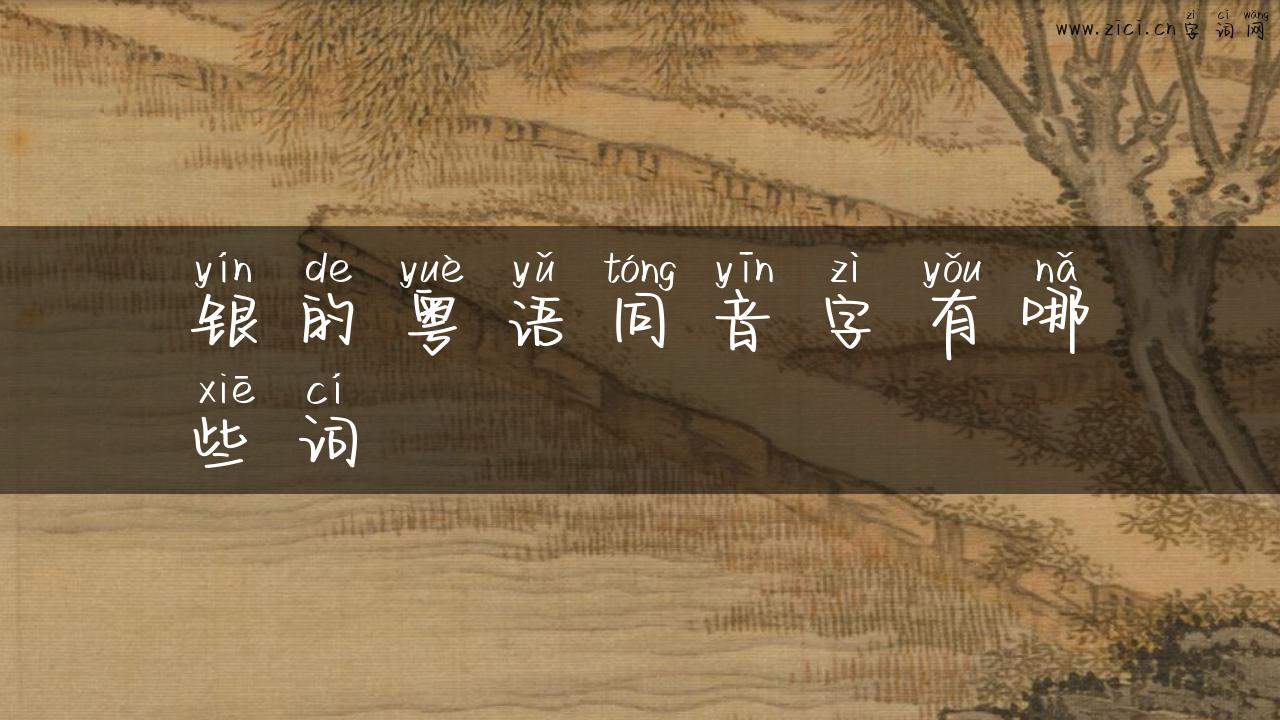 zì cí wǎng
www.zici.cn字词网
yín de yuè yǔ tóng yīn zì yǒu nǎ
银的粤语同音字有哪
xiē cí
些词